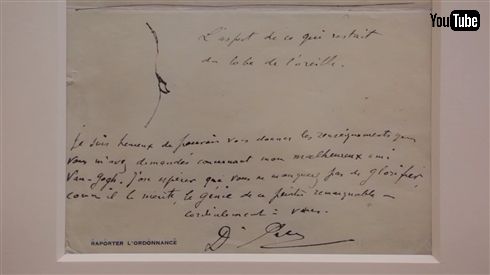 YouTube
L'aspect de ce qui restait
du lobe de l'oreille.
Je suis heureux de pouvoir vous donner les renseignements que
vous m'avez demandés concernant mon malheureux ami
Van-Gogh. J'ose espérer que vous ne manquerez pas de glorifier
comme il le mérite, le génie de ce peintre remarquable –
Cordialement à vous.
Dr Rey
RAPORTER L'ORDONNANCE